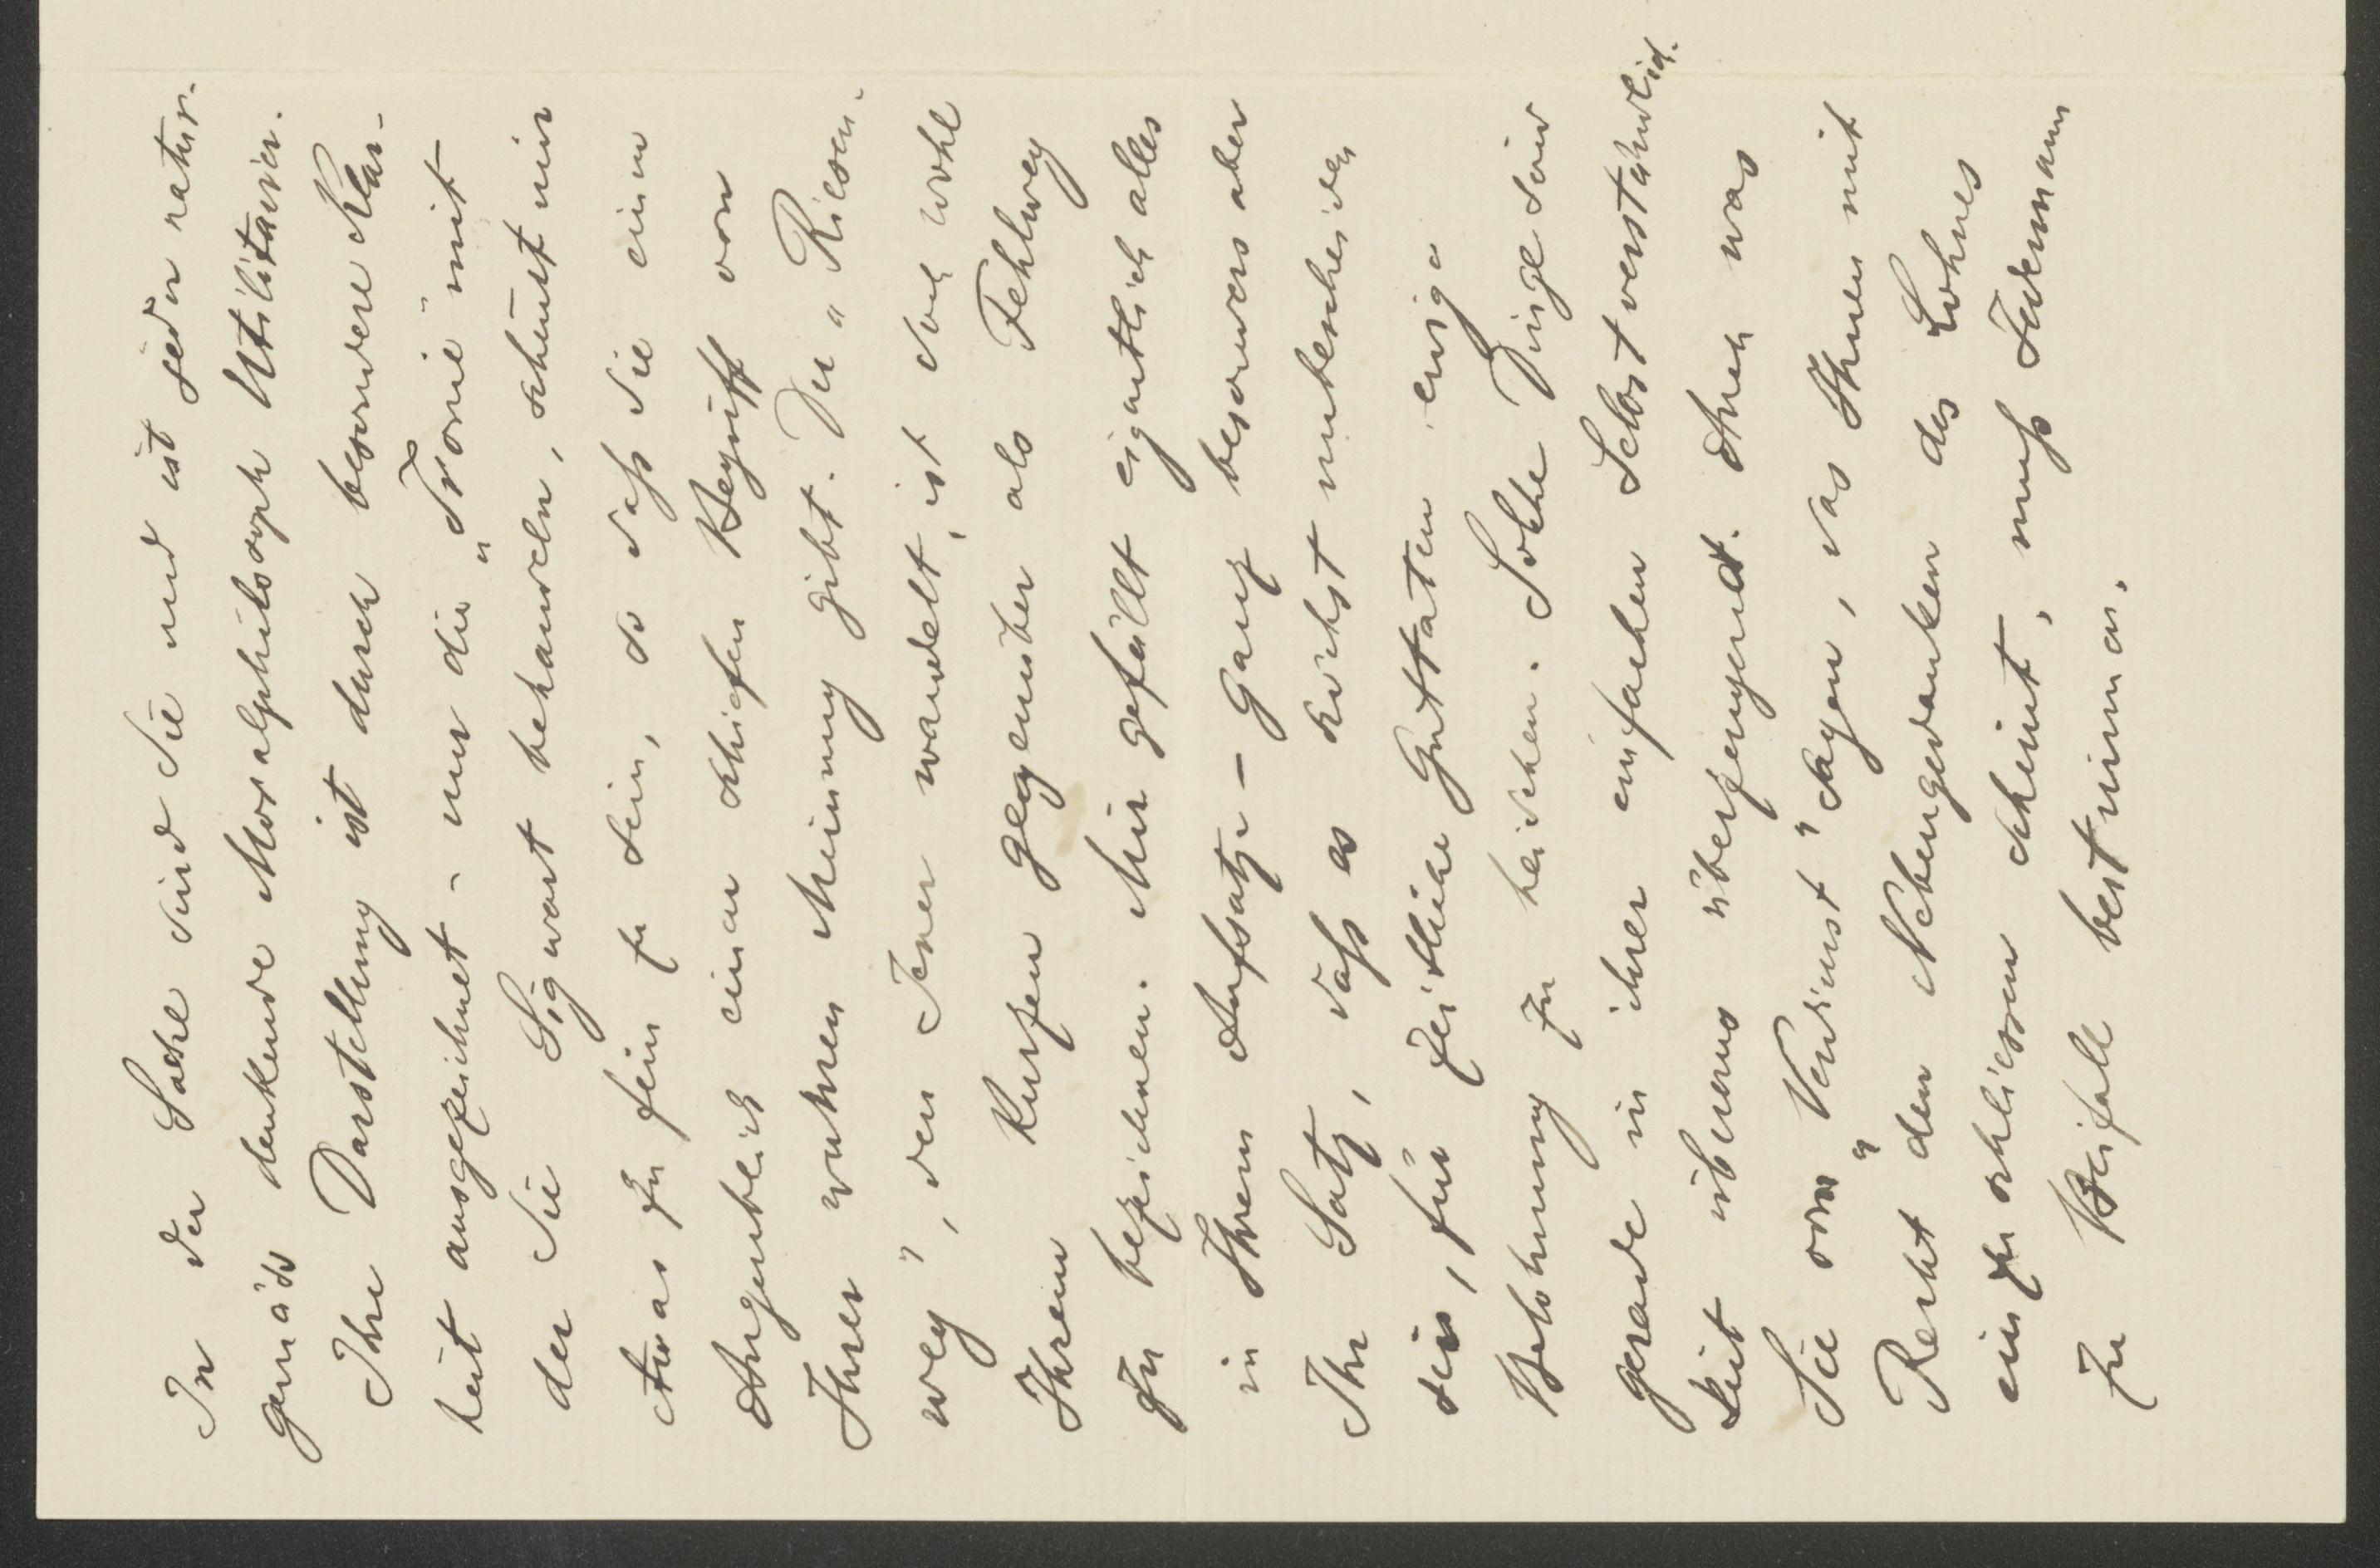 In der Sache sind Sie und ist jeder natur-
gemäss denkende Moralphilosoph Utilitarier.
Ihre Darstellung ist durch besondere Klar-
heit ausgezeichnet - nur die „Ironie" mit
der Sie Sigwart behandeln, scheint mir
etwas zu fein zu sein, so dass sie einem
Augenblick einen schiefen Begriff von
Ihrer wahren Meinung gibt. Der „Riesen-
weg", den Jener wandelt, ist doch wohl
Ihrem Kurzen gegenüber als Fehlweg
zu bezeichnen. Mir gefällt eigentlich alles
in Ihrem Aufsatze - Ganz besonders aber
Ihr Satz, dass es höchst unbescheiden
sei, für zeitliche Guttaten ewige
Belohnung zu heischen. Solche Dinge sind
gerade in ihrer einfachen Selbstverständlich-
keit überaus überzeugend. Auch was
Sie vom „Verdienst" sagen, das Ihnen mit
Recht den Nebengedanken des Lohnes
einzuschliessen scheint, muss Jedermann
zu Beifall bestimmen.